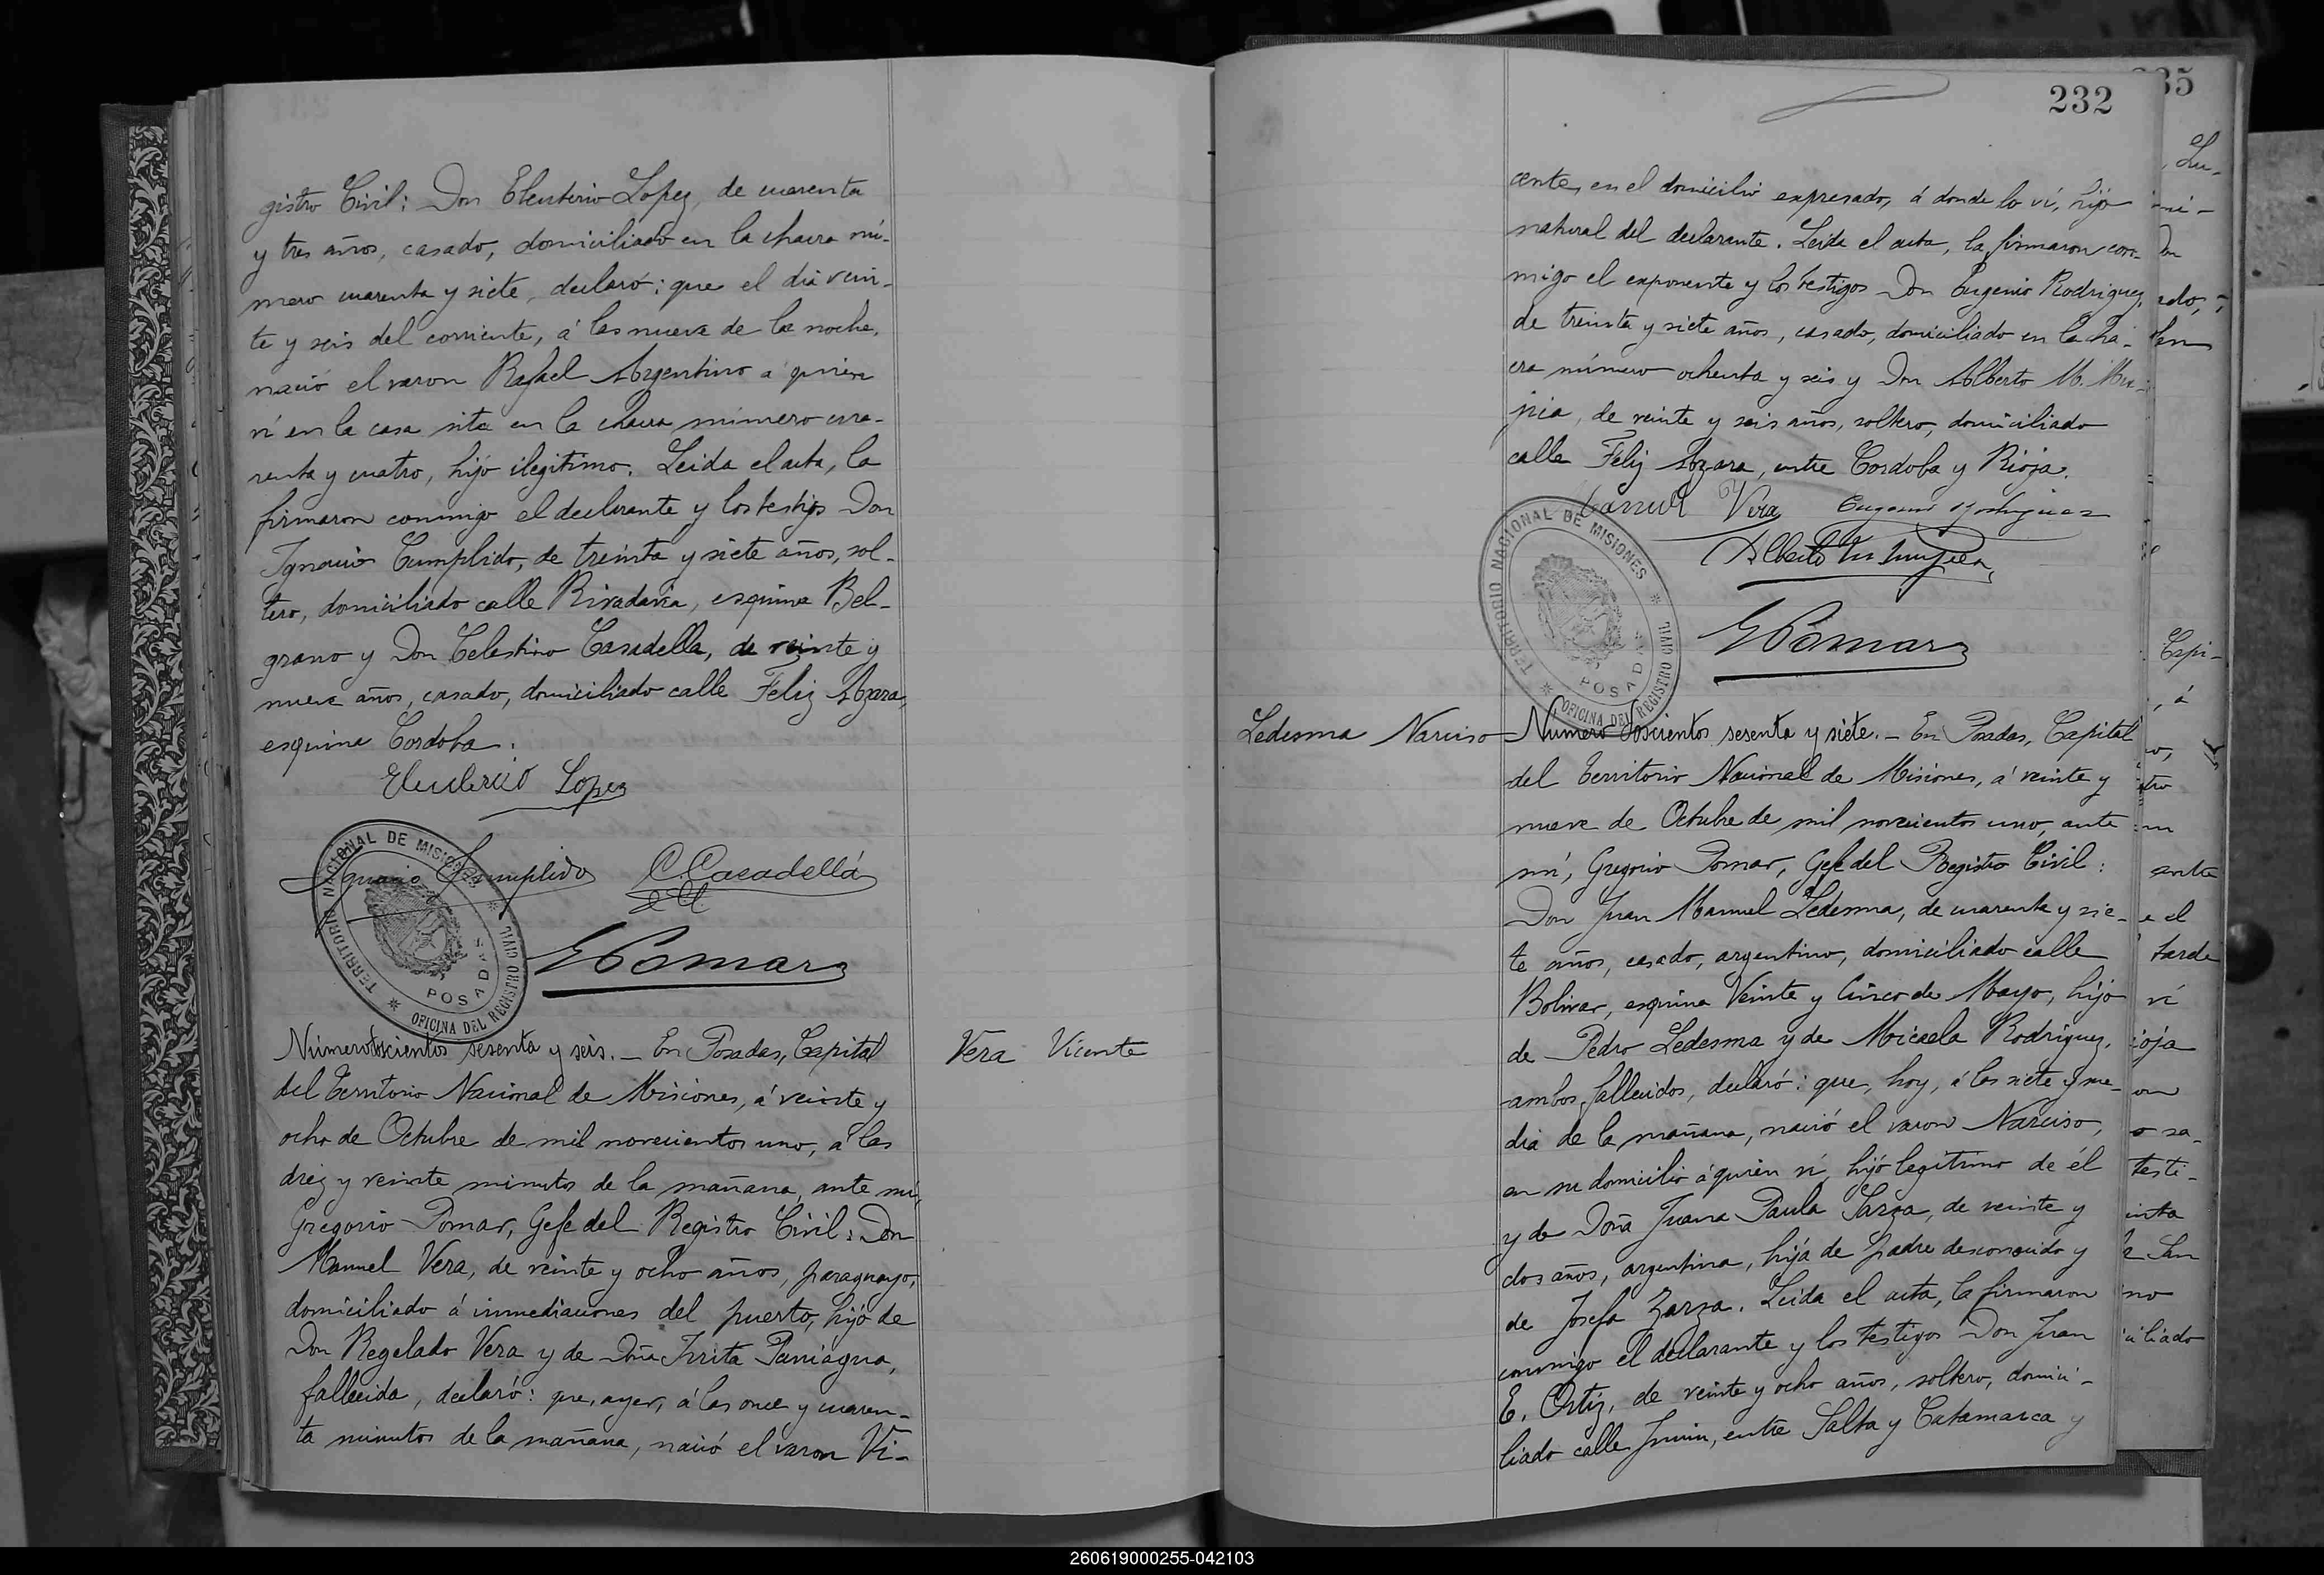 gistro Civil: Don Eleuterio Lopez, de cuarenta
y tres años, casado, domiciliado en la chacra nú-
mero cuarenta y siete, declaró: que el dia vein-
te y seis del corriente, á las nueve de la noche,
nació el varon Rafael Argentino á quien
ví en la casa sita en la chacra número cua-
renta y cuatro, hijo ilegitimo. Leida el acta, la
firmaron conmigo el declarante y los testigos Don
Ignacio Cumplido, de treinta y siete años, sol-
tero, domiciliado calle Rivadavia, esquina Bel-
grano y Don Celestino Casadella, de veinte y
nueve años, casado, domiciliado calle Feliz Azara,
esquina Cordoba.
Eleuterio Lopez
Ignacio Cumplido C. Casadellá
TERRITORIO NACIONAL DE MISIONES
POSADAS
OFICINA DEL REGISTRO CIVIL
GPomar
Número doscientos sesenta y seis. - En Posadas, Capital
Vera Vicente
del Territorio Nacional de Misiones, á veinte y
ocho de Octubre de mil novecientos uno, á las
diez y veinte minutos de la mañana, ante mí,
Gregorio Pomar, Gefe del Registro Civil: Don
Manuel Vera, de veinte y ocho años, paraguayo,
domiciliado á inmediaciones del puerto, hijo de
Don Regalado Vera y de Doña Paniagua,
fallecida, declaró: que, ayer, á las once y cuaren-
ta minutos de la mañana, nació el varon Vi-
232
cente, en el domicilio expresado, á donde lo ví, hijo
natural del declarante. Leida el acta, la firmaron con-
migo el exponente y los testigos Don Eugenio Rodriguez,
de treinta y siete años, casado, domiciliado en la cha-
cra número ochenta y seis y Don Alberto M.
de veinte y seis años, soltero, domiciliado
calle Feliz Azara, entre Cordoba y Rioja.
Manuel Vera Eugenio Rodriguez
Alberto M.
TERRITORIO NACIONAL DE MISIONES
POSADAS
OFICINA DEL REGISTRO CIVIL
GPomar
Ledesma Narciso
Número doscientos sesenta y siete. - En Posadas, Capital
del Territorio Nacional de Misiones, á veinte y
nueve de Octubre de mil novecientos uno, ante
mí, Gregorio Pomar, Gefe del Registro Civil:
Don Juan Manuel Ledesma, de cuarenta y sie-
te años, casado, argentino, domiciliado calle
Bolivar, esquina Veinte y Cinco de Mayo, hijo
de Pedro Ledesma y de Micaela Rodriguez,
ambos fallecidos, declaró: que, hoy, á las siete y me-
dia de la mañana, nació el varon Narciso,
en su domicilio á quien ví, hijo legítimo de él
y de Doña Juana Paula Sarza, de veinte y
dos años, argentina, hija de padre desconocido y
de Josefa Zarza. Leida el acta, la firmaron
conmigo el declarante y los testigos Don Juan
E. Ortiz, de veinte y ocho años, soltero, domici-
liado calle Junin, entre Salta y Catamarca y
260619000255-042103